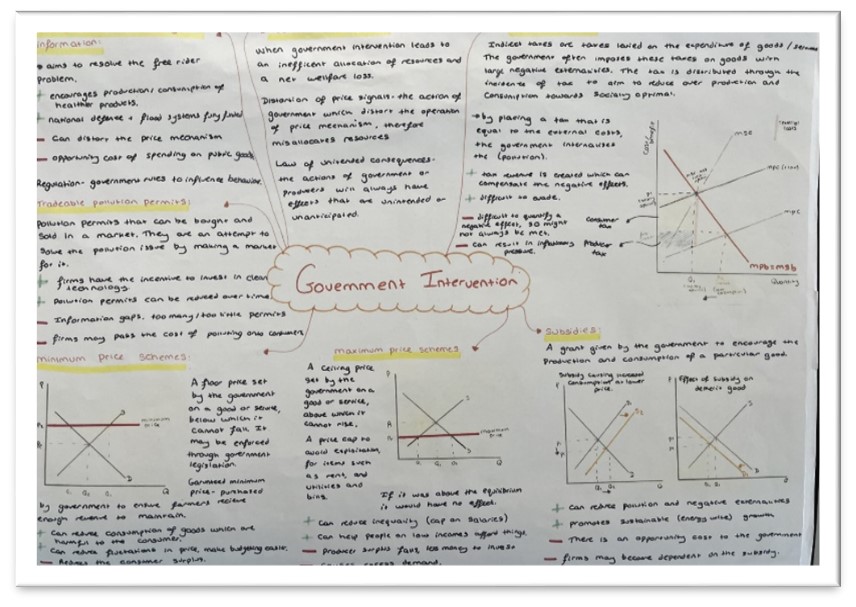 information:
aims to resolve the free rider
problem,
+ encourages production/consumption of
healthier products.
+ national defense + flood systems fully funded
- Can distort the price mechanism
- opportunity cost of spending on public goods
Regulation- government rules to influence behaviour
Tradeable pollution permits:
pollution permits that can be bought and
sold in a market. They are an attempt to
solve the pollution issue by making a market
for it.
+ firms have the incentive to invest in clean
technology.
+ Pollution permits can be reduced over time
- Information gaps, too many/too little permits
- firms may pass the cost of polluting onto consumers
When government intervention leads to
an inefficient allocation of resources and
a net wellfare loss.
Distortion of price signals- the action of
government which distort the operation
of price mechanism, therefore
misallocates resources
Law of unintended consequences-
the actions of government or
producers will always have
effects that are unintended or
unanticipated.
Indirect taxes are taxes levied on the expenditure of goods/services
The government often imposes these taxes on goods with
large negative externalities. The tax is distributed through the
incidence of tax to aim to reduce over production and
consumption towards socially optimal.
→ by placing a tax that is
equal to the external costs,
the government internalises
the (pollution).
+ tax revenue is created which can
compensate the negative effects.
+ difficult to evade.
- difficult to quantify a
negative effect, so might
not always be met.
- can result in inflationary
pressure.
Consumer
tax
Producer
tax
MSC
MPC
MPB=MSB
Quantity
Q₁
Government Intervention
minimum price schemes:
A floor price set
by the government
on a good or service,
below which it
cannot fall. It
may be enforced
through government
legislation.
Garunteed minimum
price- purchased
by government to ensure farmers recieve
enough revenue to maintain.
+ Can reduce consumption of goods which are
harmful to the consumer.
+ Can reduce fluctuations in price, make budgeting easier.
- Reduces the consumer surplus.
P
S
D
Q
maximum price schemes
A ceiling price
set by the
government on a
good or service,
above which it
cannot rise.
A price cap to
avoid exploitation,
for items such
as rent, and
utilities and
bills.
P
S
maximum
D
Q
If it was above the equilibrium
it would have no effect.
+ Can reduce inequality (cap on salaries)
+ Can help people on low incomes afford things.
- Producer surplus falls, less money to invest
- Causes excess demand.
Subsidies:
A grant given by the government to encourage the
production and consumption of a particular good.
Subsidy causing increased
consumption at lower
price.
P
S₁
S₂
D
Q
Effect of subsidy on
demerit good
P
D
Q
+ Can reduce pollution and negative externalities
+ promotes sustainable (energy wise) growth
- There is an opportunity cost to the government
- firms may become dependent on the subsidy.